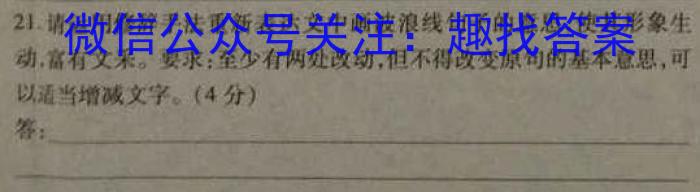 微信公众号关注：趣找答案
21.请
法重新表
文中画波浪线
形象生
动,富有文采。要求:至少有两处改动,但不得改变原句的基本意思,可
以适当增减文字。(4分)
答: